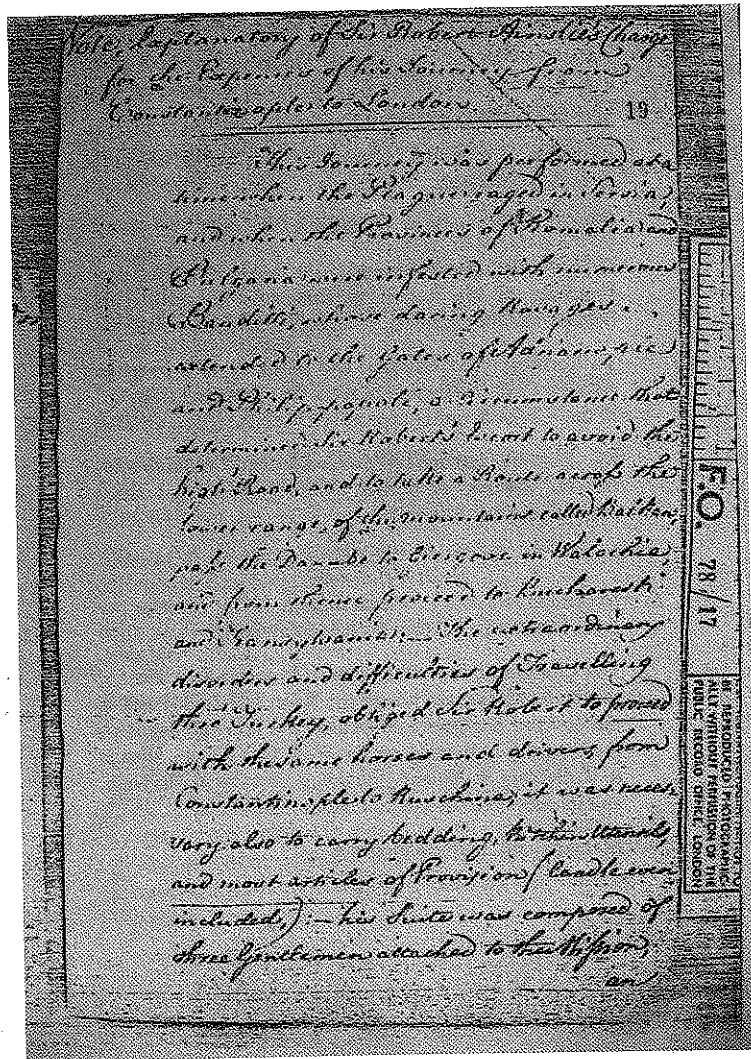 Note, Explanatory of Sir Robert Ainslie's Charge
for the Expences of his Journey from
Constantinople to London
19
This Journey was performed at a
time when the Plague raged in Servia,
and when the Provinces of Romalia and
Bulgaria were infested with numerous
Banditti, whose daring Ravages
extended to the Gates of Adrianople
and Philippopoli, a Circumstance that
determined Sir Robert's to avoid the
high Road, and to take a Route across the
lower range, of the mountains called Balkan,
pass the Danube to in Walachia,
and from thence proceed to
and Transylvania: — The extraordinary
disorders and difficulties of Travelling
thro' Turkey, obliged Sir Robert to proceed
with the same horses and drivers, from
Constantinople to it was neces-
sary also to carry bedding, Utensils,
and most articles of Provision (Candle even
included,) — his Suite was composed of
three Gentlemen attached to the Mission,
an
F.O. 78/17
BE REPRODUCED PHOTOGRAPHIC-
ALLY WITHOUT PERMISSION OF THE
PUBLIC RECORD OFFICE, LONDON